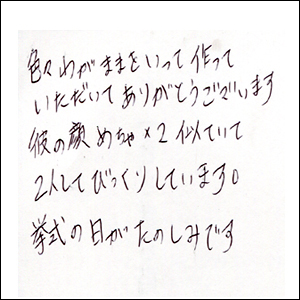 色々わがままをいって作って
いただいてありがとうございます
彼の顔めちゃ×2似ていて
2人してびっくりしています。
挙式の日がたのしみです